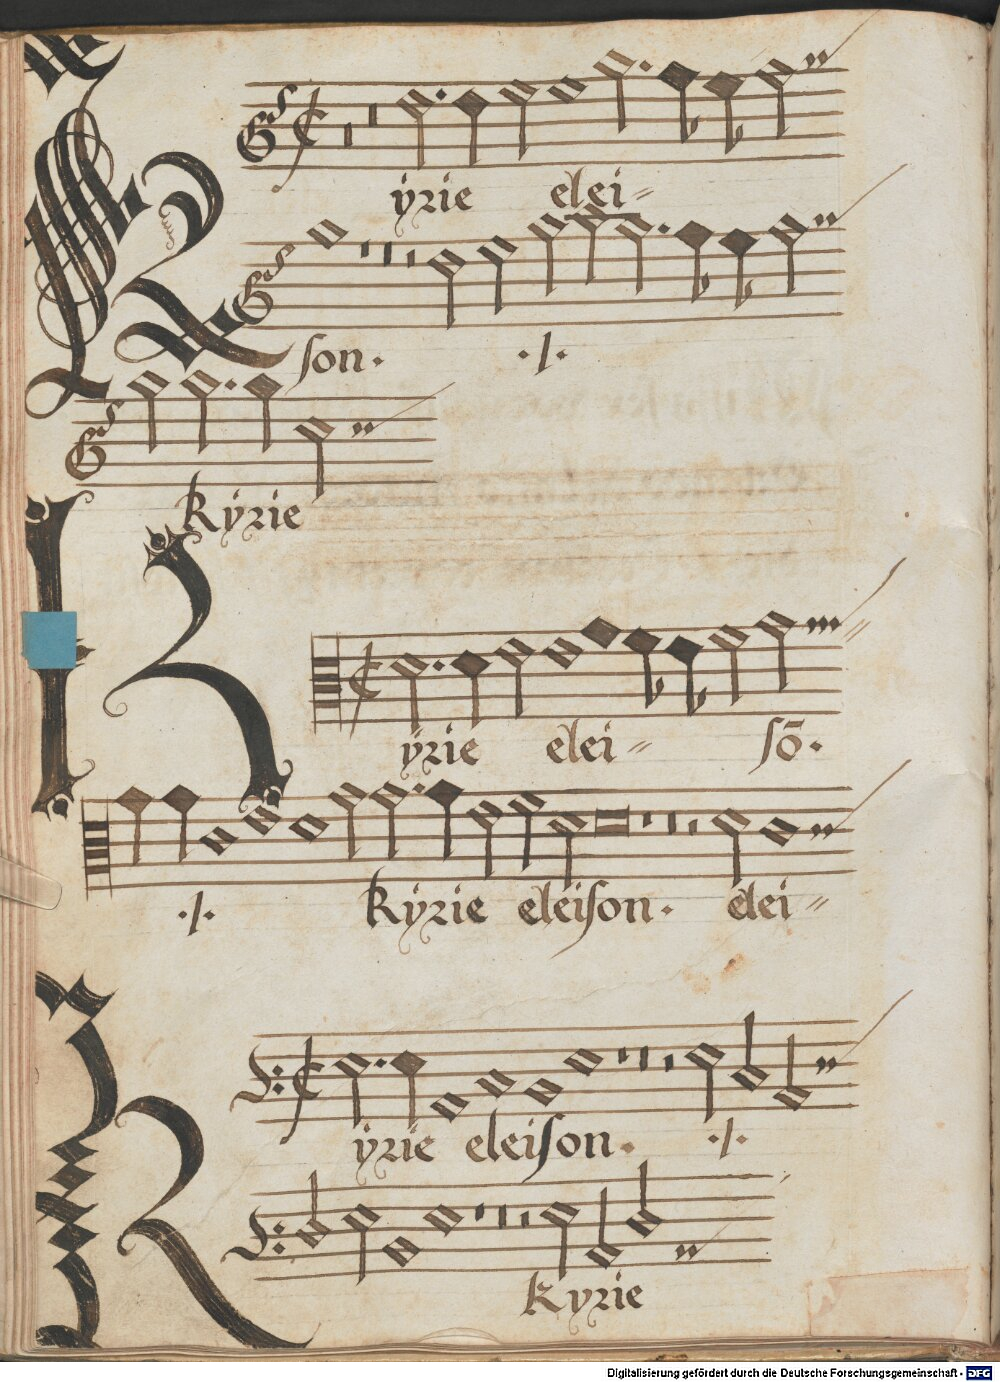 Kÿrie elei=
son. ./.
kÿrie
Kÿrie elei= sō.
./. kÿrie eleison. elei=
Kÿrie eleison. ./.
kyrie
Digitalisierung gefördert durch die Deutsche Forschungsgemeinschaft - DFG